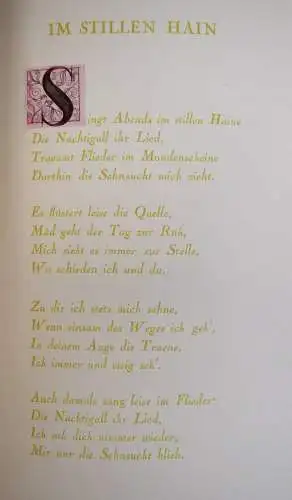 IM STILLEN HAIN
Singt Abends im stillen Haine
Die Nachtigall ihr Lied,
Traeumt Flieder im Mondenscheine
Dorthin die Sehnsucht mich zieht.
Es flüstert leise die Quelle,
Müd geht der Tag zur Ruh,
Mich zieht es immer zur Stelle,
Wo schieden ich und du.
Zu dir ich stets mich sehne,
Wenn einsam des Weges ich geh',
In deinem Auge die Traene,
Ich immer und ewig seh'.
Auch damals sang leise im Flieder
Die Nachtigall ihr Lied,
Ich sah dich nimmer wieder,
Mir nur die Sehnsucht blieb.